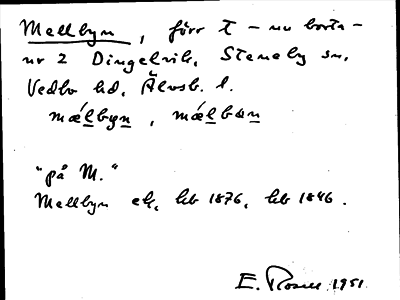 Mellbyn, förr t - nu borta -
nr 2 Dingelvik, Steneby sn,
Vedbo hd, Älvsb. l.
mǽlbyn, mǽlbən
"på M."
Mellbyn ek, hb 1876, hb 1846.
E. Rosell 1951